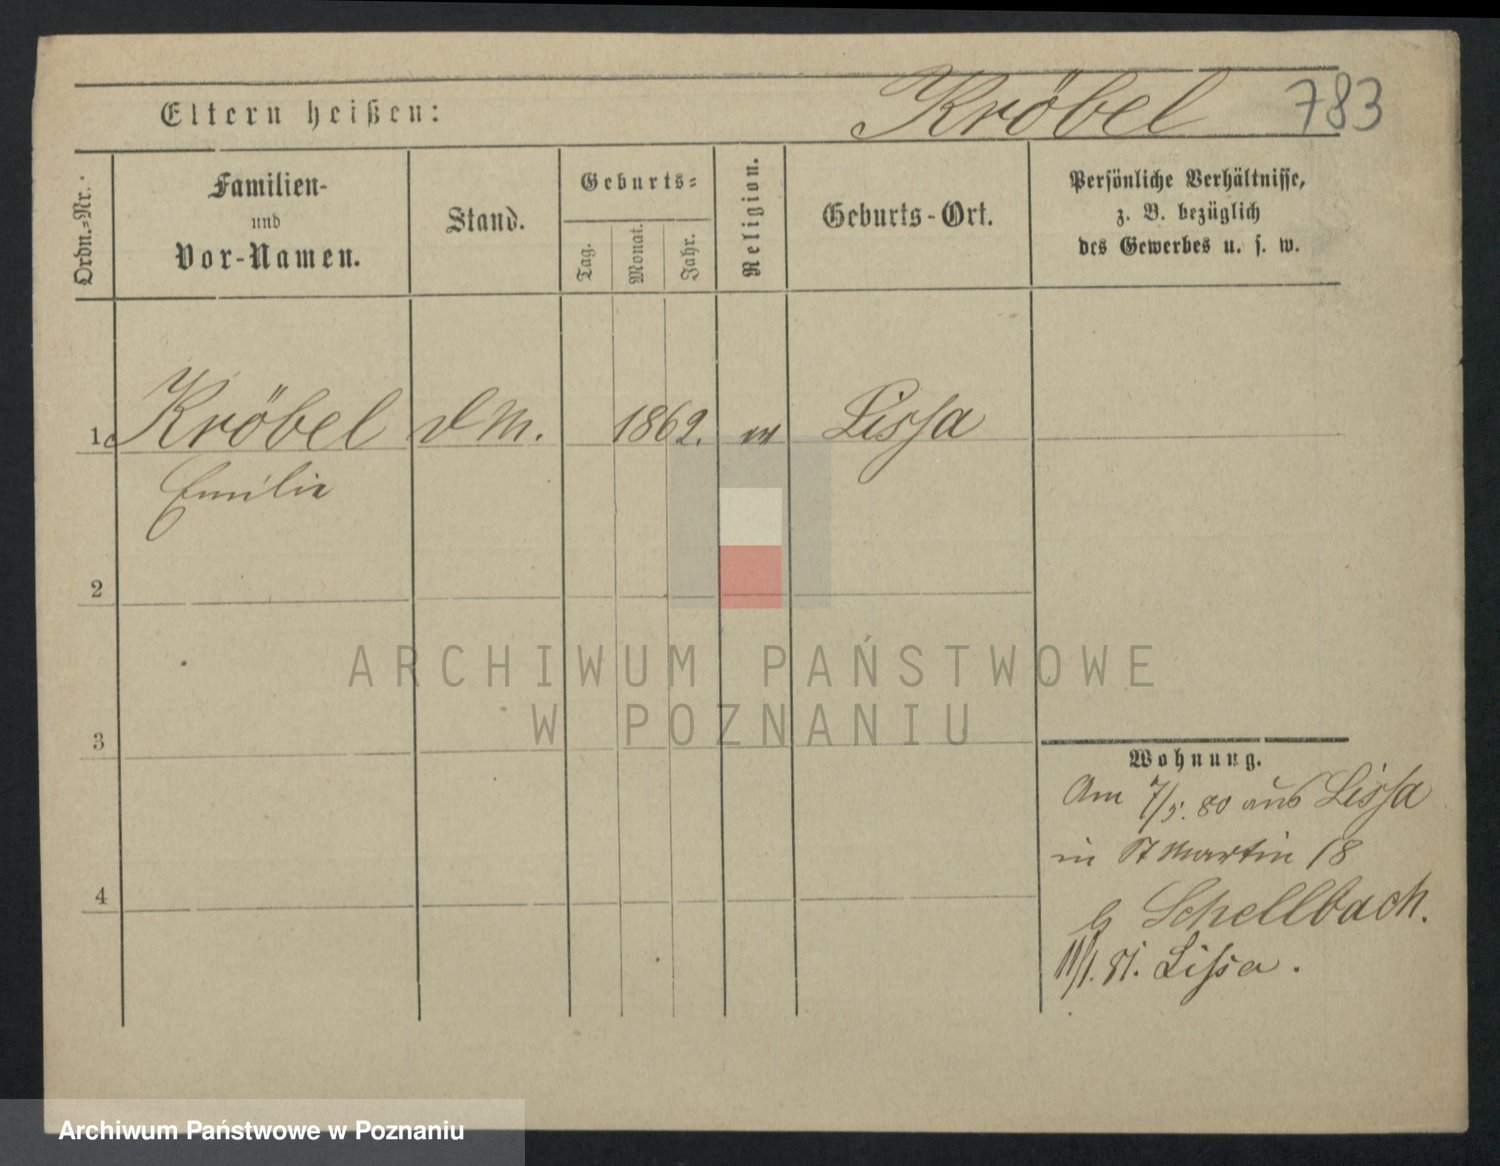 Kröbel 783
Eltern heißen:
Ordn.-Nr.
Familien-
und
Vor-Namen.
Stand.
Geburts-
Tag.
Monat.
Jahr.
Religion.
Geburts-Ort.
Persönliche Verhältnisse,
z. B. bezüglich
des Gewerbes u. s. w.
1 Kröbel d M. 1862. ev Lissa
Emilie
2
3
4
Wohnung.
Am 7/5. 80 aus Lissa
in St Martin 18
b Schellbach.
11/1. 81. Lissa.
ARCHIWUM PAŃSTWOWE
W POZNANIU
Archiwum Państwowe w Poznaniu